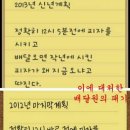 2013년 신년계획
정확히 12시 5분전에 피자를
시키고
배달오면 작년에 시킨
피자가 왜 지금오냐고
따진다.
이에 대처한
배달원의 패기
2012년 마지막계획